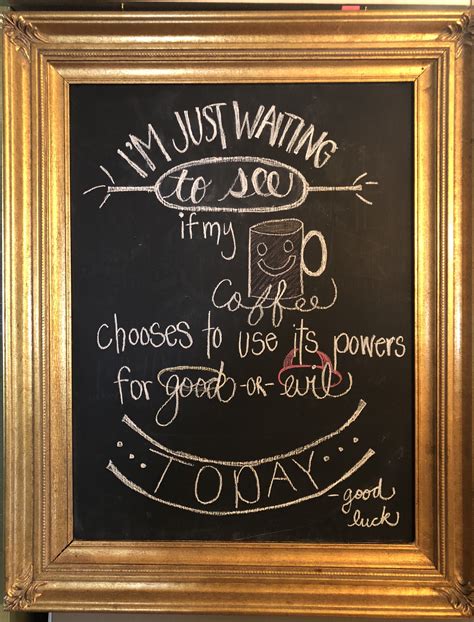 I'M JUST WAITING
to see
if my
coffee
chooses to use its powers
for good -OR- evil
...TODAY...
-good
luck